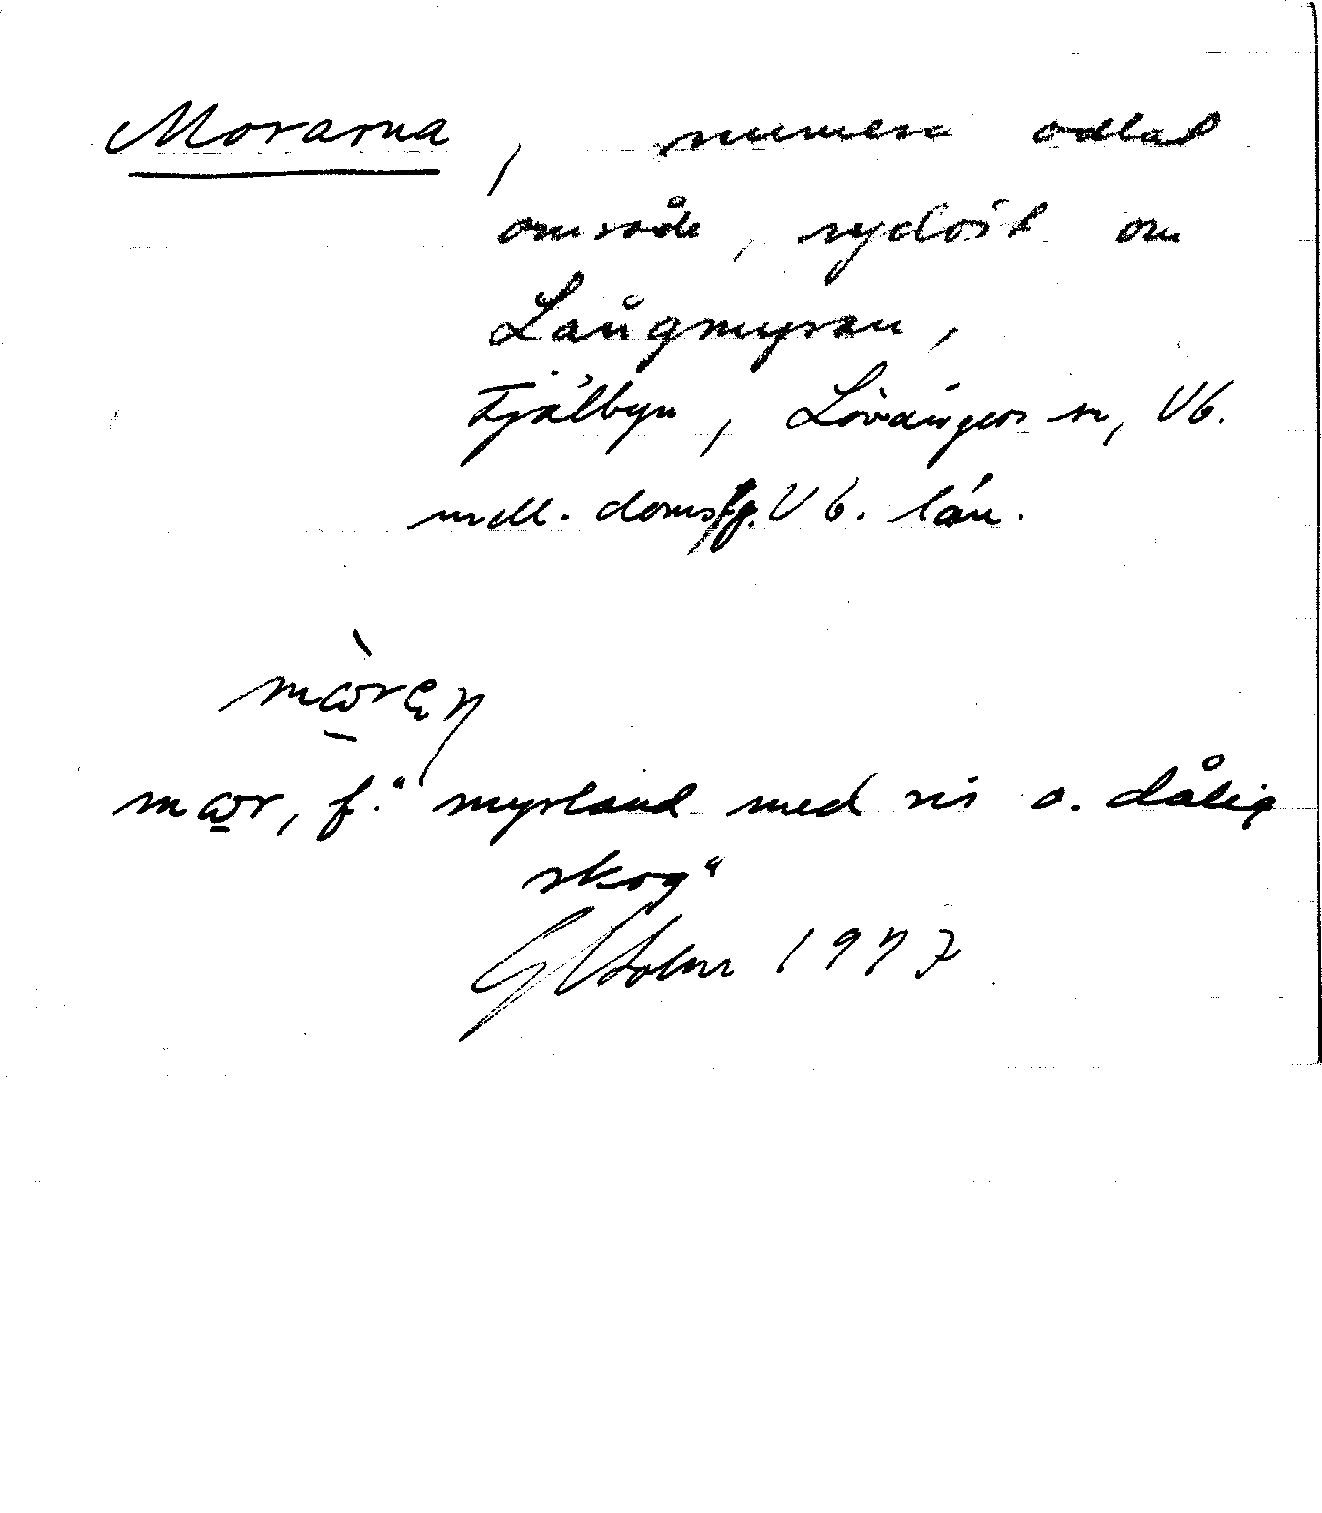 Morarna, numera odlat
område, sydöst om
Långmyran,
Tjälbyn, Lövångers sn, Vb.
mell. doms, Vb. län.
mòren
mor, f. "myrland med ris o. dålig
skog"
Holm 1977